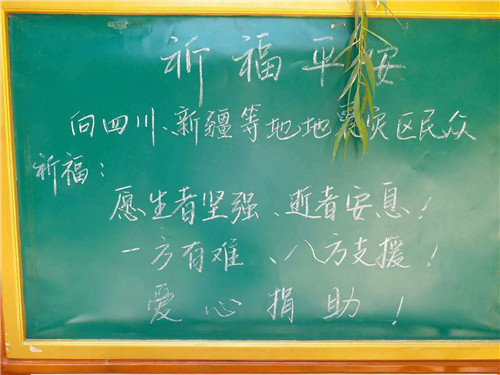 祈福平安
向四川、新疆等地地震灾区民众
祈福：
愿生者坚强、逝者安息！
一方有难、八方支援！
爱心捐助！